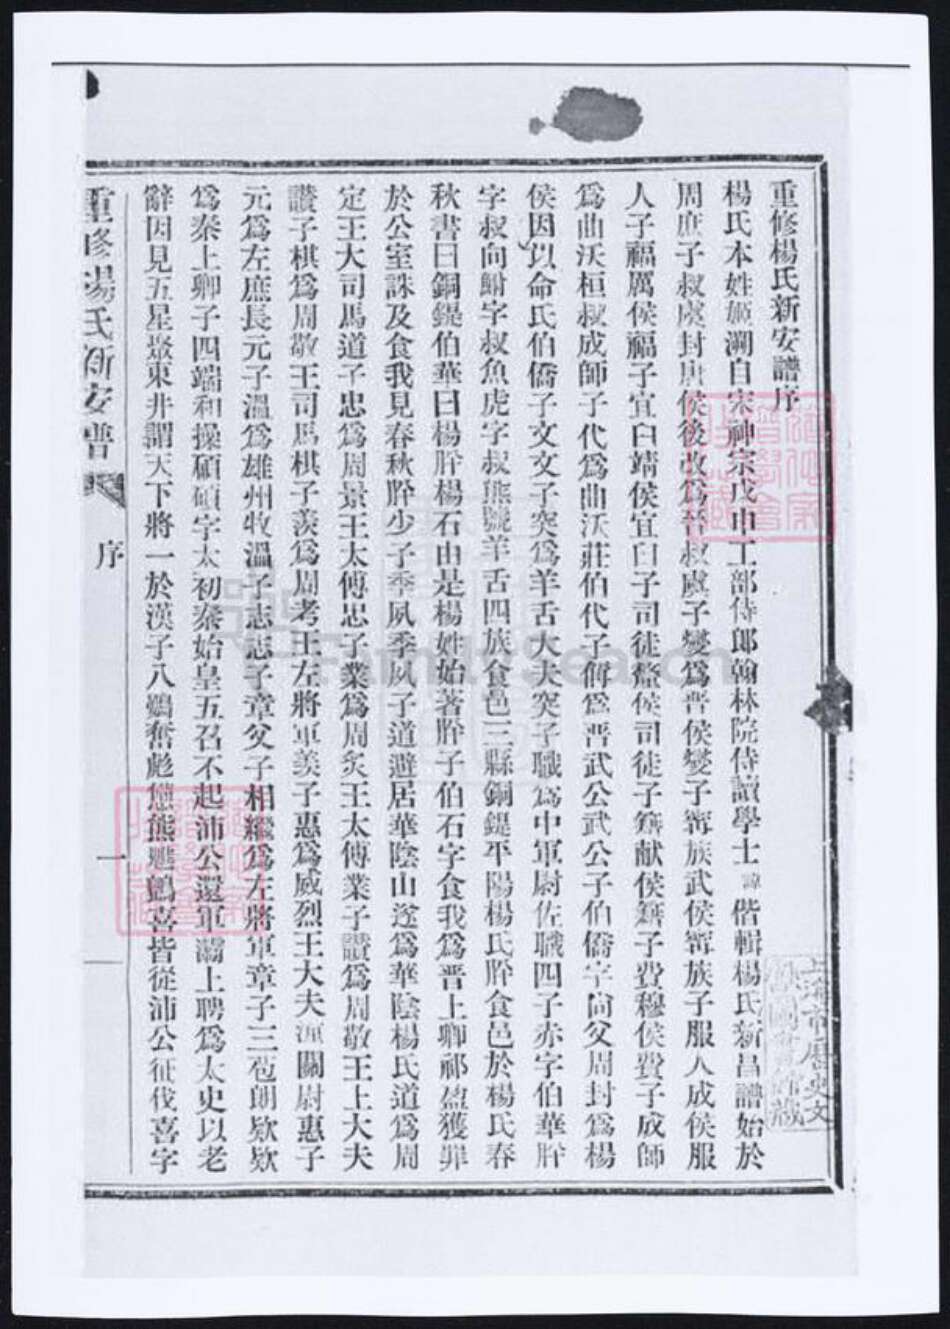 重修楊氏新安譜序
楊氏本姓姬溯自宋神宗戊申工部侍郎翰林院侍讀學士諱偕輯楊氏新昌譜始於
周庶子叔虞封唐侯後改爲晉叔虞子燮爲晉侯燮子甯族武侯甯族子服人成侯服
人子福厲侯福子宜臼靖侯宜臼子司徒釐侯司徒子籍献侯籍子費穆侯費子成師
爲曲沃桓叔成師子代爲曲沃莊伯代子偁爲晋武公武公子伯僑字尚父周封爲楊
侯因以命氏伯僑子文文子突爲羊舌大夫突子職爲中軍尉佐職四子赤字伯華肸
字叔向鮒字叔魚虎字叔熊號羊舌四族食邑三縣銅鍉平陽楊氏肸食邑於楊氏春
秋書曰銅鍉伯華曰楊肸楊石由是楊姓始著肸子伯石字食我爲晋上卿祁盈獲罪
於公室誅及食我見春秋肸少子季夙季夙子道避居華陰山遂爲華陰楊氏道爲周
定王大司馬道子忠爲周景王太傅忠子業爲周炙王太傅業子讚爲周敬王上大夫
讚子棋爲周敬王司馬棋子羨爲周考王左將軍羨子惠爲威烈王大夫潼關尉惠子
元爲左庶長元子溫爲雄州牧溫子志志子章父子相繼爲左將軍章子三苞朗欵欵
爲秦上卿子四端和操碩碩字太初秦始皇五召不起沛公還軍灞上聘爲太史以老
辭因見五星聚東井謂天下將一於漢子八鷃奮彪熊鸇喜皆從沛公征伐喜字
重修楊氏新安譜
序
一
FamilySearch